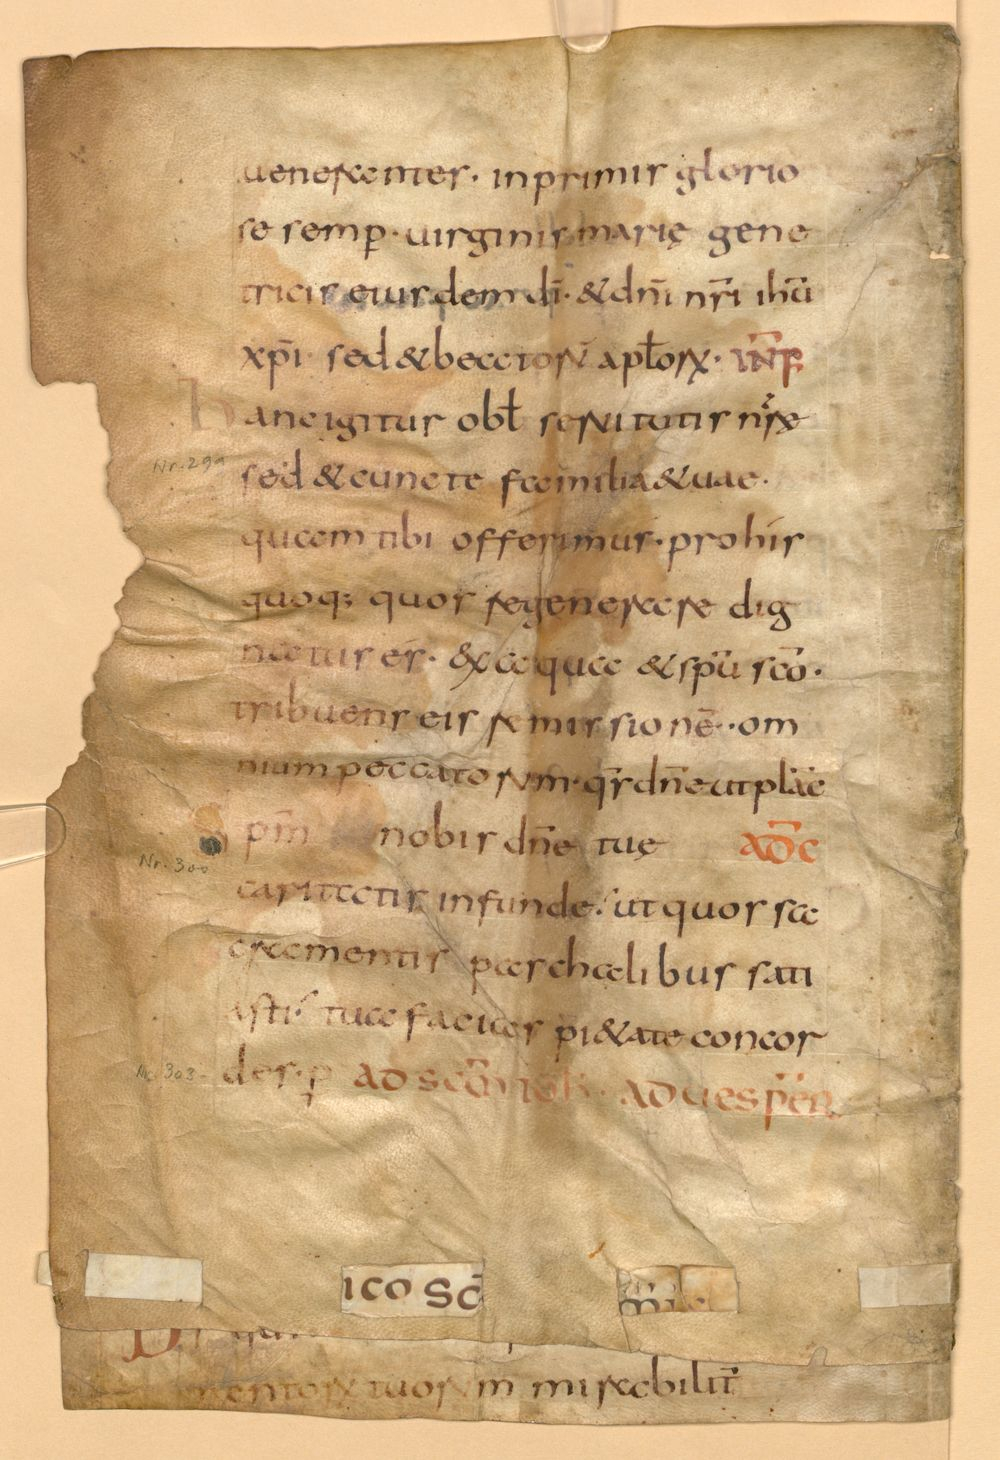 uenerantes· inprimis glorio
se semꝑ· uirginis marię gene
tricis eiusdem dī· & dn̄i nr̄i ihū
xp̄i· sed & beatorū aptło℞·
Hanc igitur obł seruitutis nr̄ę
sed & cuncte familia& uae·
quam tibi offerimus· prohis
quoq; quos regenerare dig
natus es· ex aqua & sp̄ū sc̄o·
tribuens eis remissionē· om
nium peccatorum· q̄s dn̄e ut plac̄
Sp̄m nobis dn̄e tuę ADC̄
caritatis infunde· ut quos sac
ramentis paschalibus sati
asti· tua facias pi&ate concor
des· ꝑ AD SC̄M IOH̄· AD UESPER̄
Nr. 299
Nr. 300
Nr. 303
ICO SC̄
mento℞ tuorum mirabilit̄